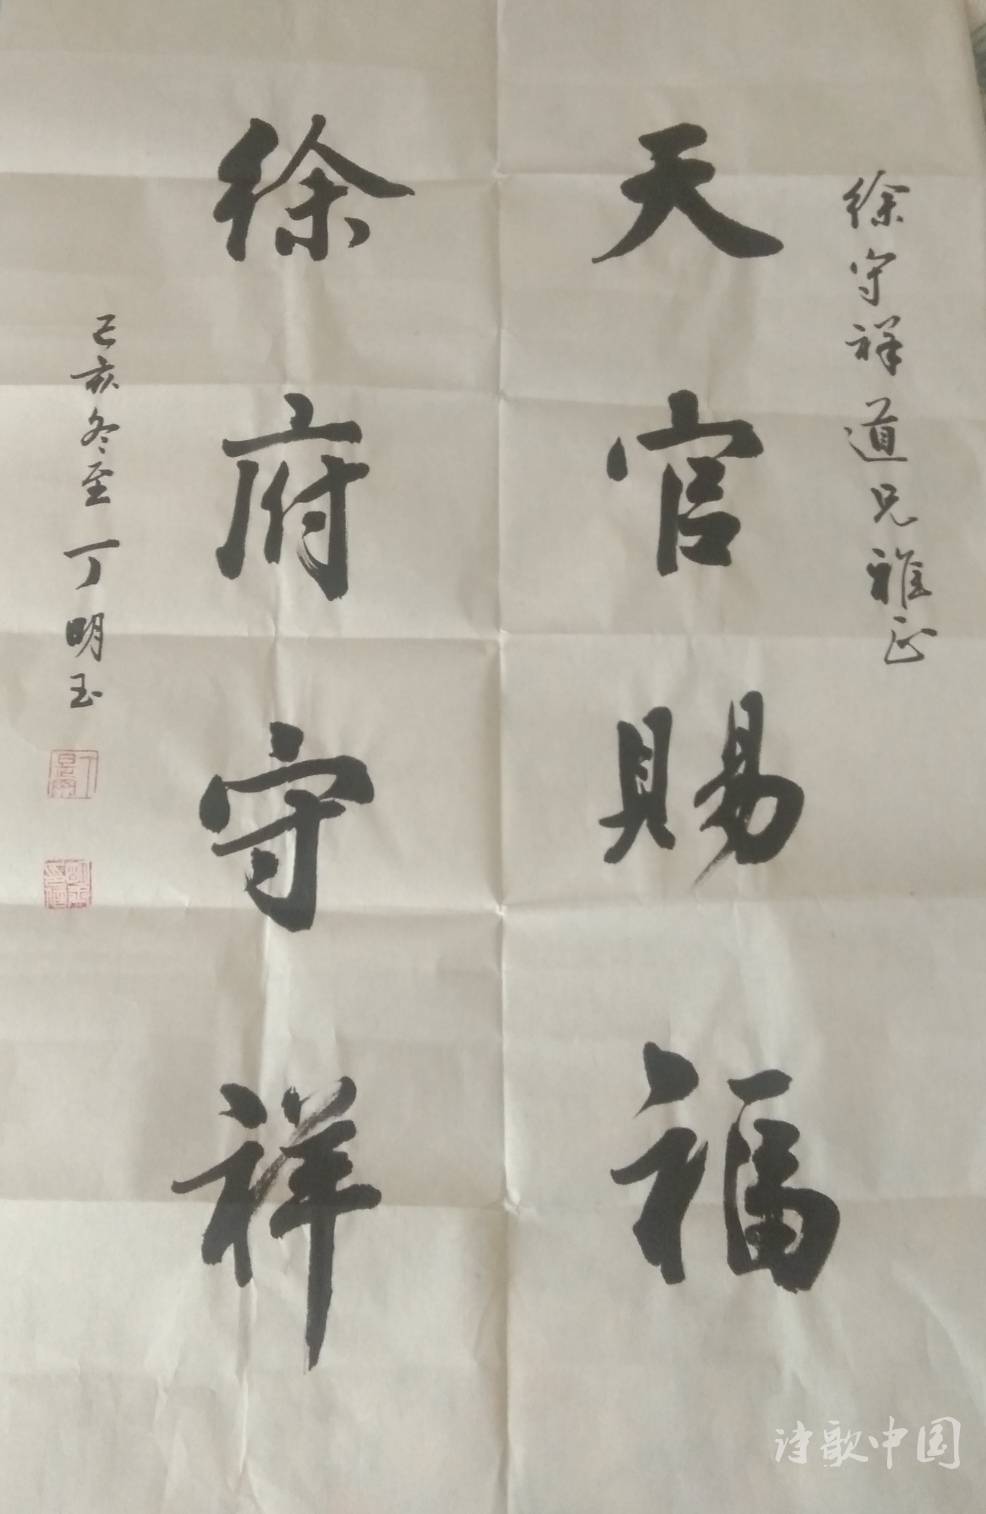 徐守祥道兄雅正
天官賜福
徐府守祥
己亥冬至 丁明玉
诗歌中国